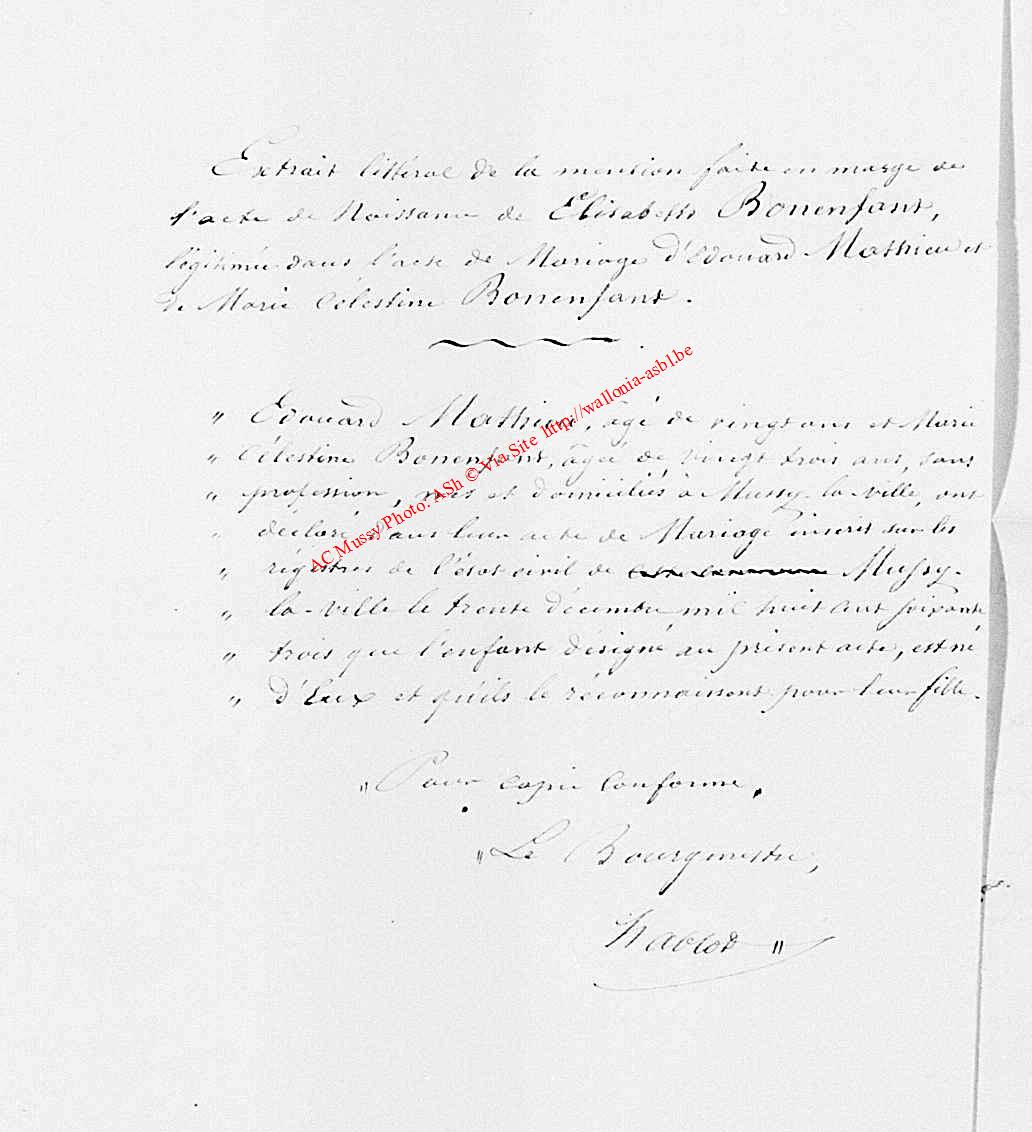 Extrait littéral de la mention faite en marge de
l'acte de Naissance de Elisabeth Bonenfant,
légitimée dans l'acte de Mariage d'Edouard Mathieu et
de Marie Célestine Bonenfant.
" Edouard Mathieu, âgé de vingt ans et Marie
" Célestine Bonenfant, âgée de vingt trois ans, sans
" profession, nés et domiciliés à Mussy-la-ville, ont
" déclaré dans leur acte de Mariage inscrit sur les
" régistres de l'état civil de Mussy-
" la-ville le trente Décembre mil huit cent soixante
" trois que l'enfant désigné au présent acte, est né
" d'Eux et qu'ils le réconnaissent pour leur fille.
" Pour copie conforme,
" Le Bourgmestre,
"
AC Mussy Photo: ASh © Via Site http://wallonia-asbl.be